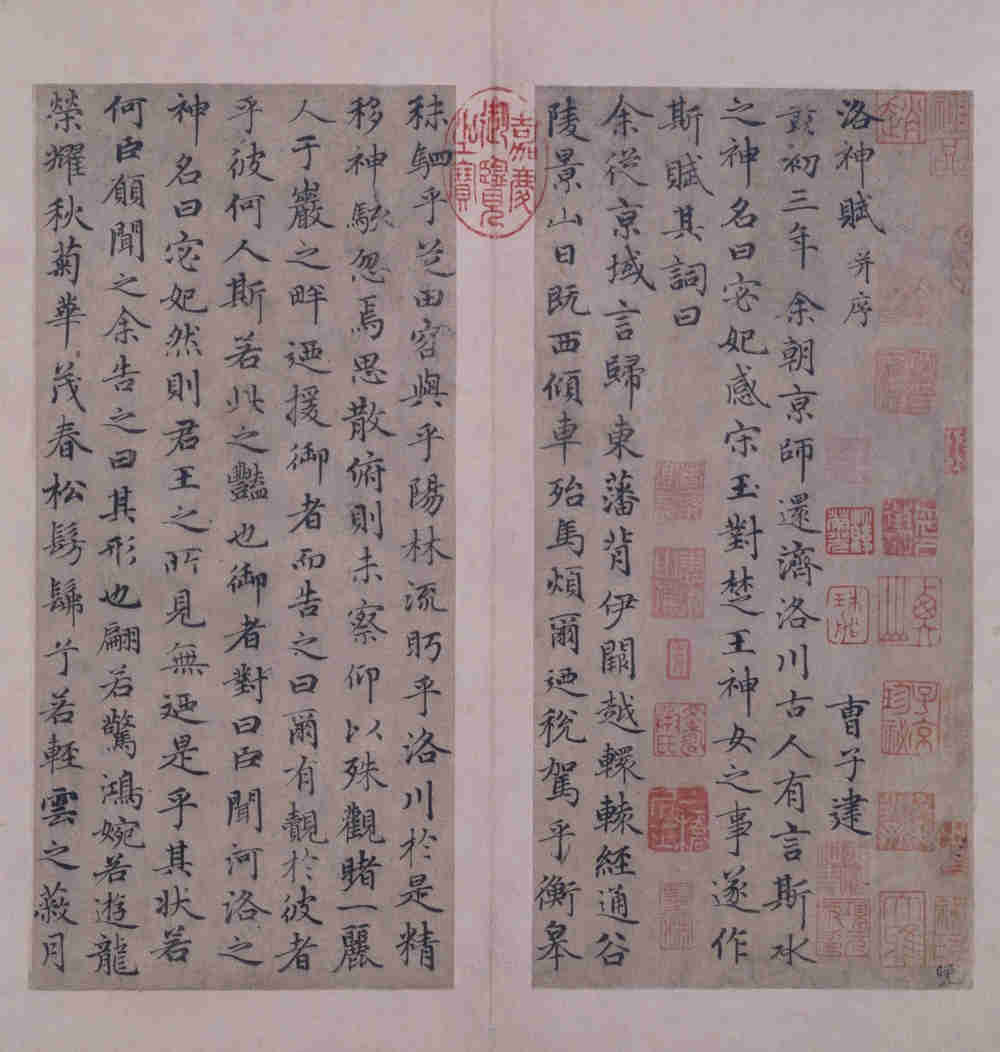 洛神賦 并序 曹子建
黃初三年余朝京師還濟洛川古人有言斯水
之神名曰宓妃感宋玉對楚王神女之事遂作
斯賦其詞曰
余從京域言歸東藩背伊闕越轘轅經通谷
陵景山日既西傾車殆馬煩爾迺稅駕乎蘅皋
秣駟乎芝田容與乎陽林流眄乎洛川於是精
移神駭忽焉思散俯則未察仰以殊觀睹一麗
人于巖之畔迺援御者而告之曰爾有覿於彼者
乎彼何人斯若此之豔也御者對曰臣聞河洛之
神名曰宓妃然則君王之所見無迺是乎其狀若
何臣願聞之余告之曰其形也翩若驚鴻婉若遊龍
榮耀秋菊華茂春松髣髴兮若輕雲之蔽月
嘉慶御覽之寶
子京